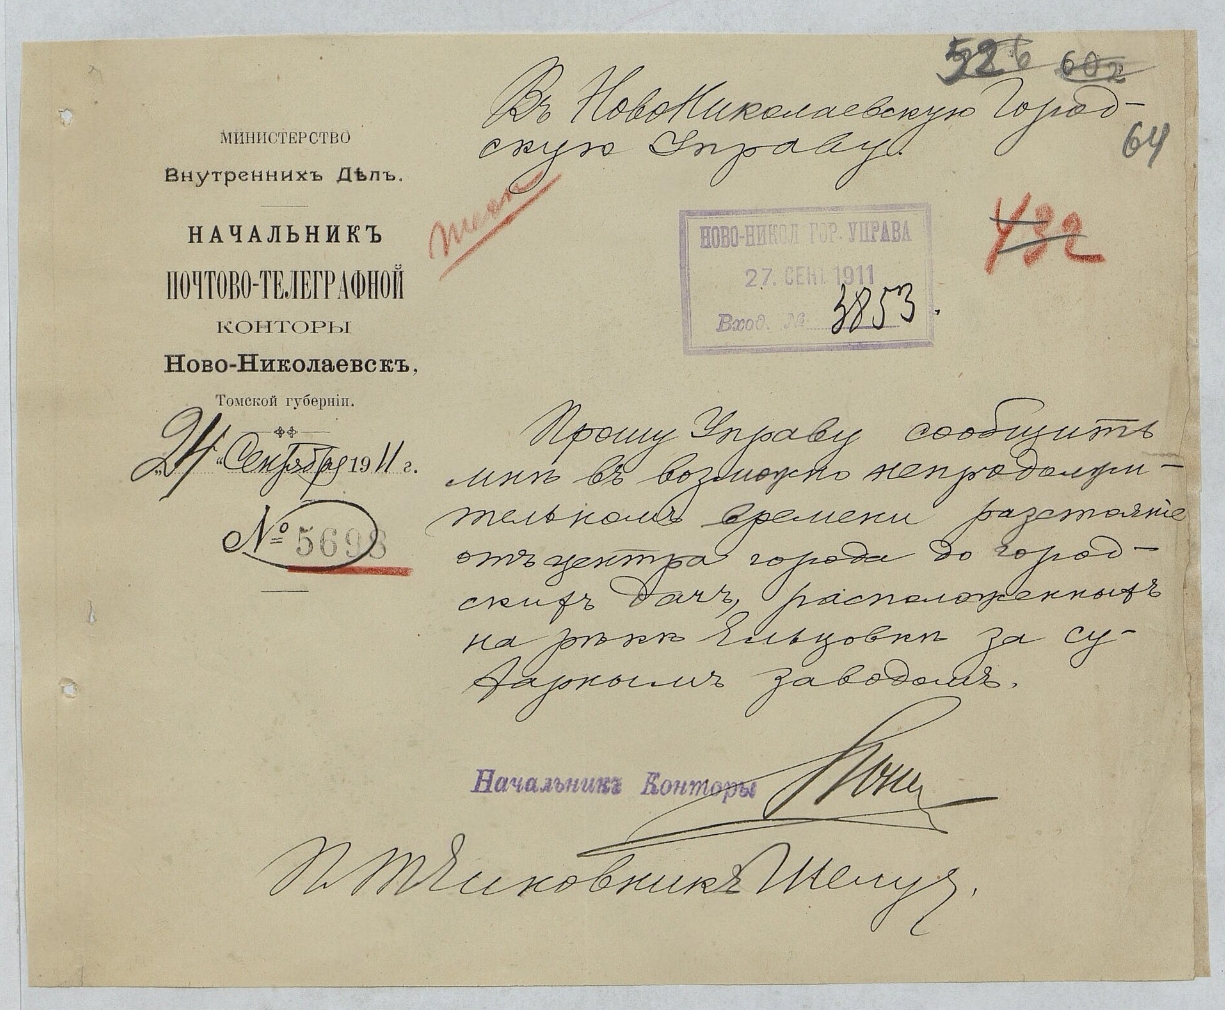 526 602
Въ НовоНиколаевскую Город-
скую Управу.
64
МИНИСТЕРСТВО
Внутреннихъ Дѣлъ.
НАЧАЛЬНИКЪ
ПОЧТОВО-ТЕЛЕГРАФНОЙ
КОНТОРЫ
Ново-Николаевскъ,
Томской губерніи.
24 "Сентября 1911 г.
№ 5698
432
НОВО-НИКОЛ ГОР. УПРАВА
27. СЕН. 1911
Вход. № 3853.
Прошу Управу сообщить
мнѣ въ возможно непродолжи-
тельномъ времени разстояніе
отъ центра города до город-
скихъ дачъ, расположенныхъ
на рѣкѣ Ельцовкѣ за су-
харнымъ заводомъ.
Начальникъ Конторы
П. Т. Чиновникъ